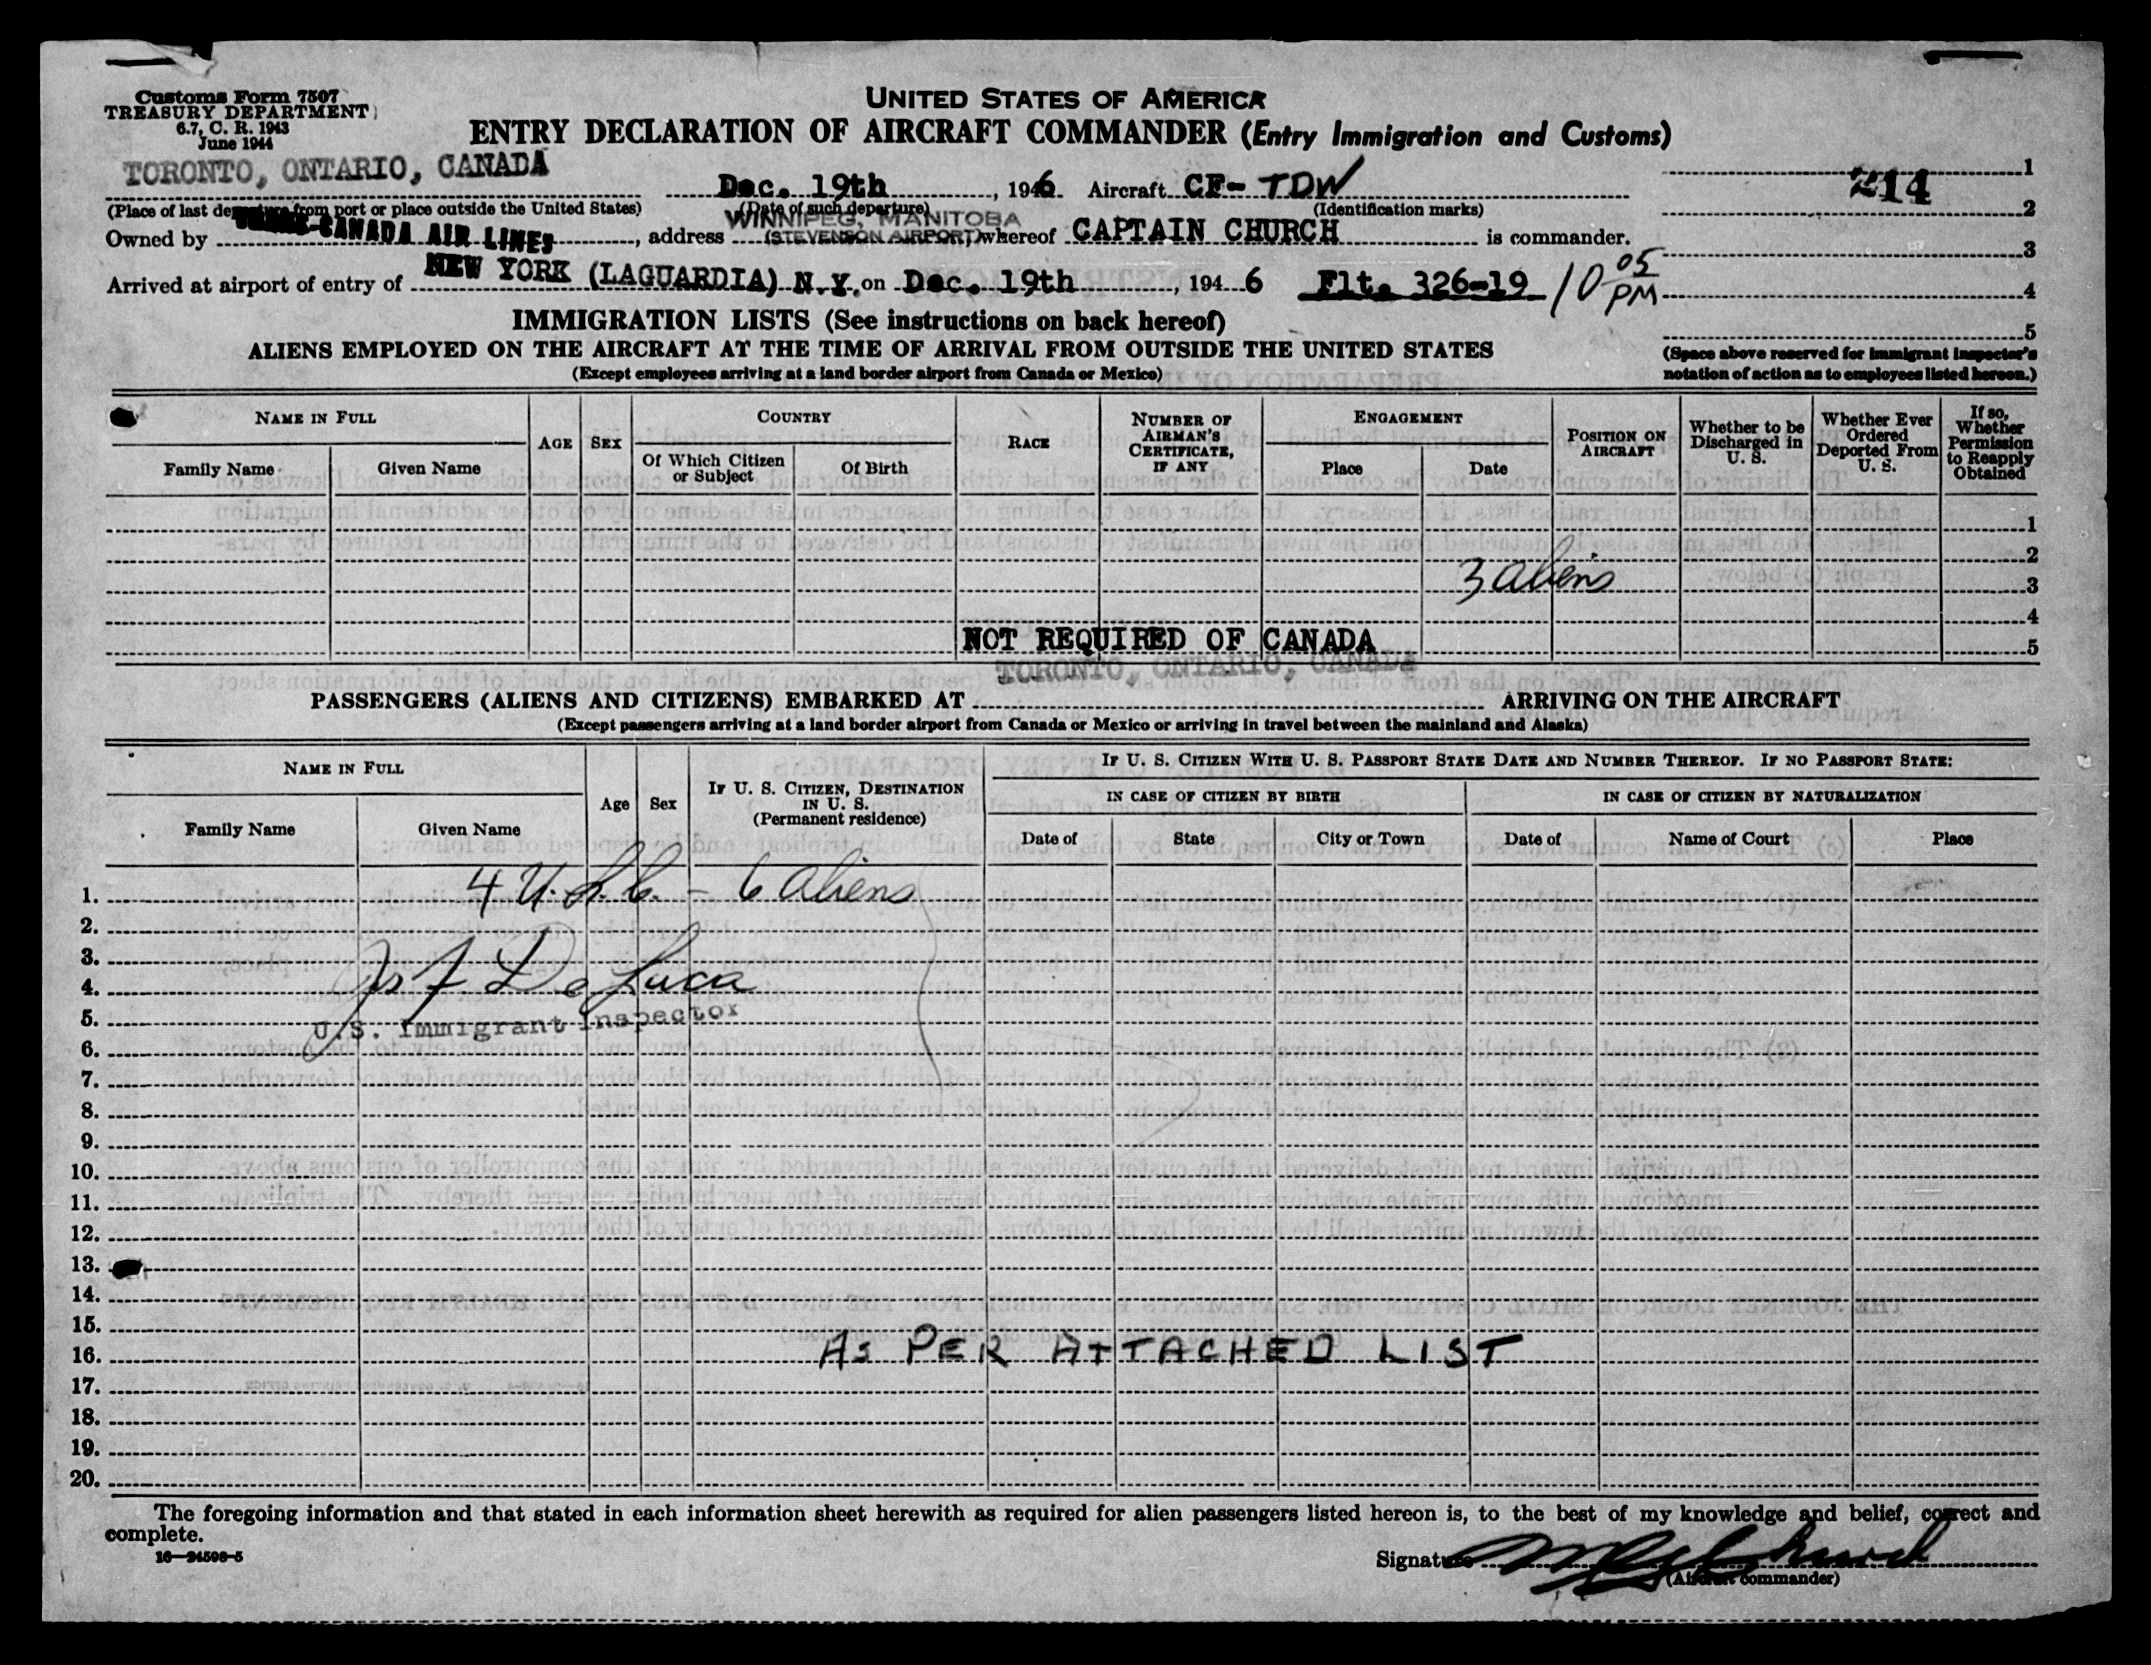 Customs Form 7507
TREASURY DEPARTMENT
6.7, C. R. 1943
June 1944
UNITED STATES OF AMERICA
ENTRY DECLARATION OF AIRCRAFT COMMANDER (Entry Immigration and Customs)
TORONTO, ONTARIO, CANADA Dec. 19th, 1946 Aircraft CF-TDW
(Place of last departure from port or place outside the United States) (Date of such departure) (Identification marks)
WINNIPEG, MANITOBA
Owned by TRANS-CANADA AIR LINES, address (STEVENSON AIRPORT) whereof CAPTAIN CHURCH is commander.
Arrived at airport of entry of NEW YORK (LAGUARDIA) N.Y. on Dec. 19th, 1946 Flt. 326-19 / 10 05 PM
1
214
2
3
4
5
(Space above reserved for immigrant inspector's
notation of action as to employees listed hereon.)
IMMIGRATION LISTS (See instructions on back hereof)
ALIENS EMPLOYED ON THE AIRCRAFT AT THE TIME OF ARRIVAL FROM OUTSIDE THE UNITED STATES
(Except employees arriving at a land border airport from Canada or Mexico)
NAME IN FULL
Family Name Given Name
AGE SEX
COUNTRY
Of Which Citizen or Subject Of Birth
RACE
NUMBER OF AIRMAN'S CERTIFICATE, IF ANY
ENGAGEMENT
Place Date
POSITION ON AIRCRAFT
Whether to be Discharged in U. S.
Whether Ever Ordered Deported From U. S.
If so, Whether Permission to Reapply Obtained
1
2
3 aliens 3
4
NOT REQUIRED OF CANADA 5
TORONTO, ONTARIO, CANADA
PASSENGERS (ALIENS AND CITIZENS) EMBARKED AT ARRIVING ON THE AIRCRAFT
(Except passengers arriving at a land border airport from Canada or Mexico or arriving in travel between the mainland and Alaska)
NAME IN FULL
Family Name Given Name
Age Sex
IF U. S. CITIZEN, DESTINATION IN U. S.
(Permanent residence)
IF U. S. CITIZEN WITH U. S. PASSPORT STATE DATE AND NUMBER THEREOF. IF NO PASSPORT STATE:
IN CASE OF CITIZEN BY BIRTH IN CASE OF CITIZEN BY NATURALIZATION
Date of State City or Town Date of Name of Court Place
1. 4 U.S.C. - 6 aliens
2.
3.
4. Jos F De Luca
5. U.S. Immigrant Inspector
6.
7.
8.
9.
10.
11.
12.
13.
14.
15.
16. AS PER ATTACHED LIST
17.
18.
19.
20.
The foregoing information and that stated in each information sheet herewith as required for alien passengers listed hereon is, to the best of my knowledge and belief, correct and
complete.
16—24598-5
Signature Church
(Aircraft commander)